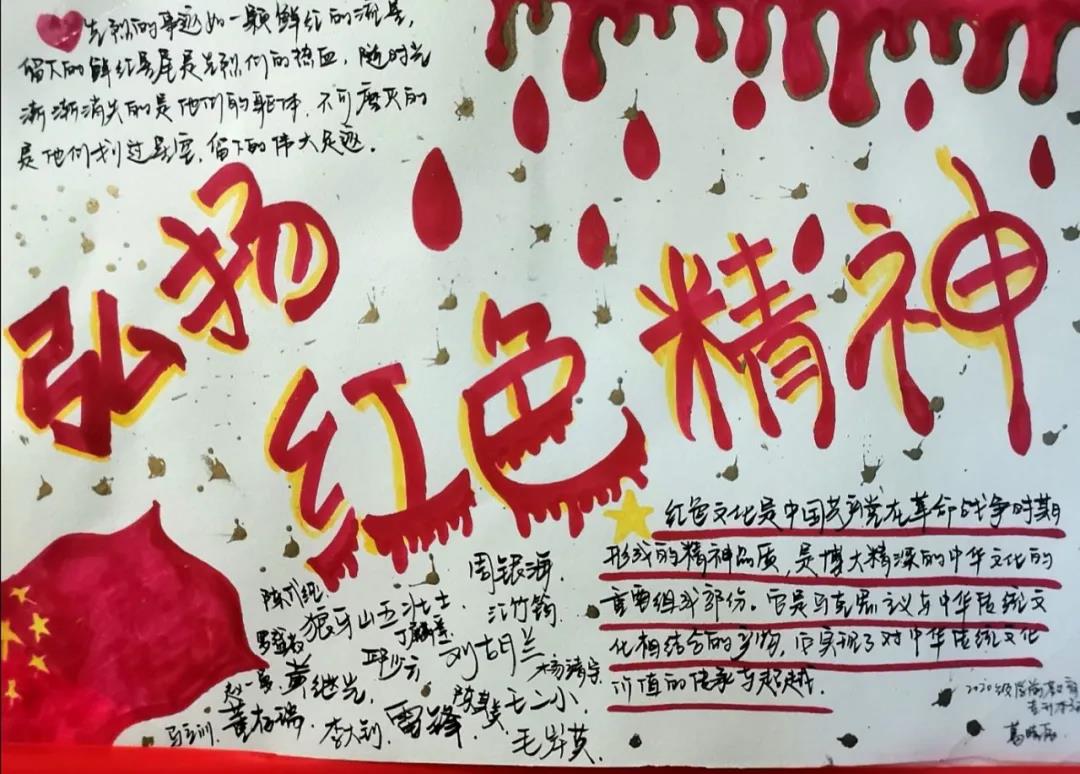 先烈的事迹如一颗鲜红的流星,
留下的鲜红星尾是先烈们的热血,随时光
渐渐消失的是他们的躯体,不可磨灭的
是他们划过星空,留下的伟大足迹.
弘扬
红色
精神
红色文化是中国共产党在革命战争时期
形成的精神品质,是博大精深的中华文化的
重要组成部份.它是马克思主义与中华传统文
化相结合的产物,它实现了对中华传统文化
价值的传承与超越.
周银海
狼牙山五壮士.
江竹筠.
罗盛教
邱少云
刘胡兰
杨靖宇
赵一曼
黄继光
董存瑞
李大钊
雷锋
王二小.
毛岸英.